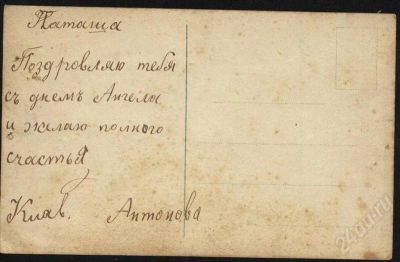 Наташа
Поздровляю тебя
съ днемъ Ангела
и желаю полного
счастья
Клав. Антонова
24au.ru